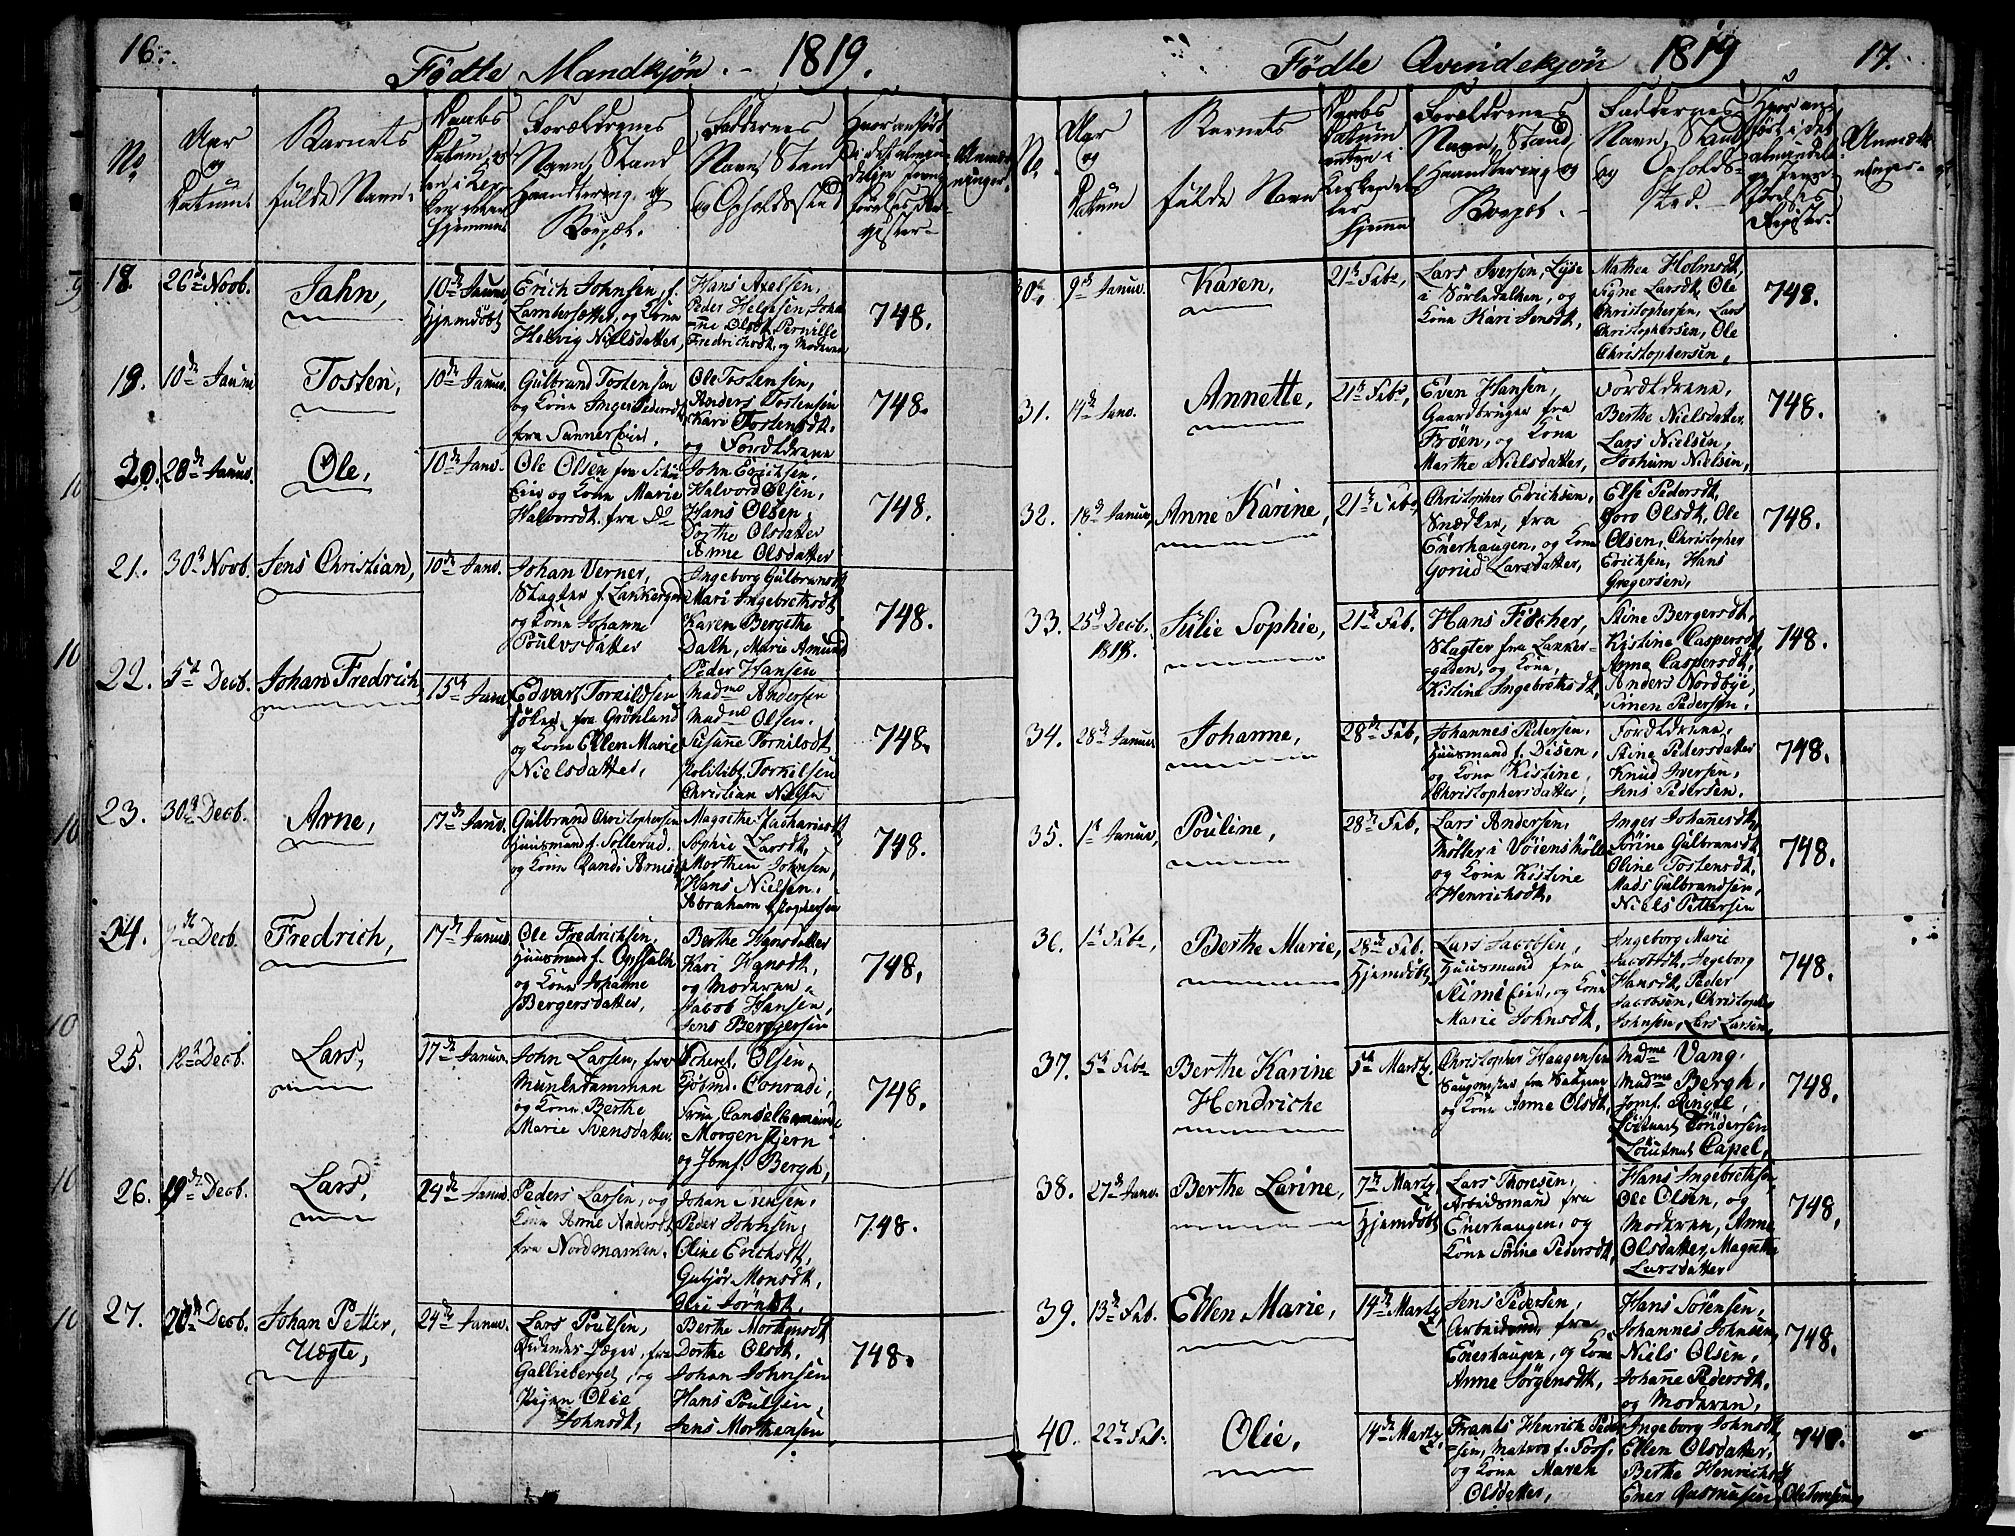 16.
Födte Mandkjön. - 1819.
No
Aar og Datum
Barnets fulde Navn.
Daabs Datum, Kirken eller Hjemmet
Forældrenes Navn, Stand Haandtering og Boepæl.
Faddernes Navn, Stand og Opholdssted
Hvor anfört i det almindelige Register
18. 26de Novb.
Jahn,
10de Januar Hjemdöbt
Erich Johnsen, f.
Lambersætter, og Kone
Helvig Nielsdatter,
Hans Axelsen,
Peder Helgesen, Joha
=nne Olsdt, Pernille
Fredrichsdt, og Moderen
748.
19. 10de Januar
Tosten,
10de Januar.
Gulbrand Tostensen
og Kone Inger Pedersdt
fra Sannerseie.
Ole Tostensen,
Anders Tostensen
Kari Tostensdt.
og Forældrene
748.
20. 28de Januar.
Ole,
10de Janv.
Ole Olsen fra
Eie og Kone Marie
Halvorsdt. fra Do
John Erichsen,
Halvord Olsen,
Hans Olsen,
Dorthe Olsdatter
Anne Olsdatter
748.
21. 30te Novb.
Jens Christian,
10de Janv.
Johan Verner,
Slagter f. Lakkergaden
og Kone Johanne
Poulsdatter
Ingeborg Gulbransdt
Mari Ingebrethsdt
Karen Bergithe
Dath, Marie Amund
Peder Hansen
748.
22. 5te Decb.
Johan Fredrich
15de Janv.
Edvart Torkildsen
fra Grönland
og Kone Ellen Marie
Nielsdatter,
Madme Andersen
Madme Olsen.
Susanne Torkilsdt
Politibt. Torkilsen
Christian Nielsen
748.
23. 30te Decb.
Arne,
17de Janv.
Gulbrand Christophersen
Huusmand f. Sollerud.
og Kone Randi Arnesdt
Magrethe Zachariasdt
Sophie Larsdt,
Morthen Johnsen,
Hans Nielsen.
Abraham
748.
24. Decb.
Fredrich,
17de Janv.
Ole Fredrichsen,
Huusmand f. Opsahl
og Kone Johanne
Bergersdatter,
Berthe Hansdatter
Kari Hansdt,
og Moderen,
Jacob Hansen,
Jens Bergersen
748.
25. 12te Decb.
Lars,
17de Januar.
John Larsen, fra
Munkedammen
og Kone Berthe
Marie Svensdatter.
Olsen,
Conradi,
Frue
Morgenstjern
og Jomf. Bergh,
748.
26. 19de Decb.
Lars,
24de Januar.
Peders Larsen, og
Kone Anne Andersdt
fra Nordmarken.
Johan
Peder Johnsen,
Oline Erichsdt,
Gubjör Monsdt,
748.
27. 20de Decb.
Johan Petter,
Uægte,
24de Januar.
Lars Poulsen,
Ridende Jæger, fra
Gallieberget, og
Pigen Olie
Johnsdt,
Berthe Morthensdt
Dorthe Olsdt,
Johan Johnsen
Hans Poulsen,
Jens Morthensen
748.
Födte Qvindekjön 1819
17.
No.
Aar og Datum
Barnets fulde Navn
Daabs Datum enten i Kirken eller Hjemme
Forældrenes Navn, Stand, Haandtering og Boepæl. -
Faddernes Navn, Stand og Opholds-sted. -
Hvor anfört i det almindelige Register.
Anmærkninger.
30. 9de Januar.
Karen,
21de Febr,
Lars Iversen, Lyse
i Sörkedalhen, og
Kone Kari Jensdt,
Mathea Holmsdt,
Signe Larsdt, Ole
Christophersen, Lars
Christophersen, Ole
Christophersen,
748.
31. 14de Janv.
Annette,
21de Febr,
Even Hansen,
Gaardbruger fra
Fröen, og Kone
Marthe Nielsdatter,
Forældrene,
Berthe Nielsdatter
Lars Nielsen,
Jochum Nielsen,
748.
32. 18de Januar,
Anne Karine,
21de Febr,
Christopher Erichsen,
Snædker, fra
Enerhaugen, og Kone
Gorud Larsdatter,
Else Pedersdt,
Goro Olsdt, Ole
Olsen, Christopher
Erichsen, Hans
Gregersen,
748.
33. 25de Decb.
1818.
Julie Sophie,
21de Feb.
Hans Fischer,
Slagter fra Lakker-
gaden, og Kone,
Kistine Ingebrethsdt,
Stine Bergersdt,
Kistine Caspersdt,
Anne Caspersdt,
Anders Nordbye,
Simen Pedersen,
748.
34. 28de Januar
Johanne,
28de Feb,
Johannes Pedersen,
Huusmand f. Disen,
og Kone Kistine,
Christophersdatter,
Forældrene,
Stine Pedersdatter
Knud Iversen,
Jens Pedersen.
748.
35. 1te Januar,
Pouline,
28de Feb,
Lars Andersen,
Möller i Vöiens Mölle
og Kone Kistine
Henrichsdt,
Inger Johannesdt,
Sörine Gulbransdt
Oline Tostensdt.
Mads Gulbrandsen,
Niels Pettersen
748.
36. 1te Febr,
Berthe Marie,
28de Feb. Hjemdöbt,
Lars Jacobsen,
Huusmand fra
Eie, og Kone
Marie Johnsdt,
Ingeborg Marie
Jacobsdt, Ingeborg
Hansdt, Peder
Jacobsen, Christopher
Johnsen, Lars Larsen,
748.
37. 5te Febr
Berthe Karine
Hendriche
5te Marty.
Christopher Haagensen
og Kone Anne Olsdt,
Madme Vang.
Madme Bergh,
Jomf. Ringel,
Löitnant Töndersen
Löutnat Capel,
748.
38. 27de Janv.
Berthe Larine,
7de Marty, Hjemdöbt
Lars Thoresen,
Arbeidsmand fra
Enerhaugen, og
Kone Sörine Pedersdt,
Hans Ingebrethsen,
Ole Olsen, og
Moderen, Anne
Olsdatter, Magrethe
Larsdatter
748.
39. 13de Feb.
Ellen Marie,
14de Marty
Jens Pedersen,
fra
Enerhaugen, og Kone
Anne Jörgensdt,
Hans Sörensen,
Johannes Johnsen,
Niels Olsen,
Johane Pedersdt,
og Moderen,
748.
40. 22de Feb.
Olie,
14de Marty,
Frants Henrich Peder
=sen, Matros f.
og Kone Maren
Olsdatter,
Ingeborg Johnsdt
Ellen Olsdatter,
Berthe Henrichsdt
Ener Rasmussen, Ole Torresen,
748.